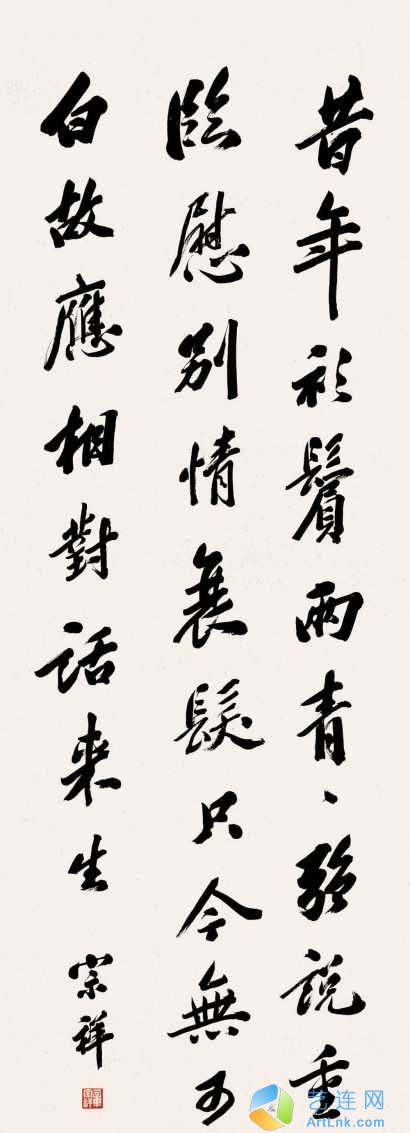 昔年衫鬢兩青、強說重
臨慰別情衰髮只今無可
白故應相對話來生
宗祥
艺连网
ArtLink.com